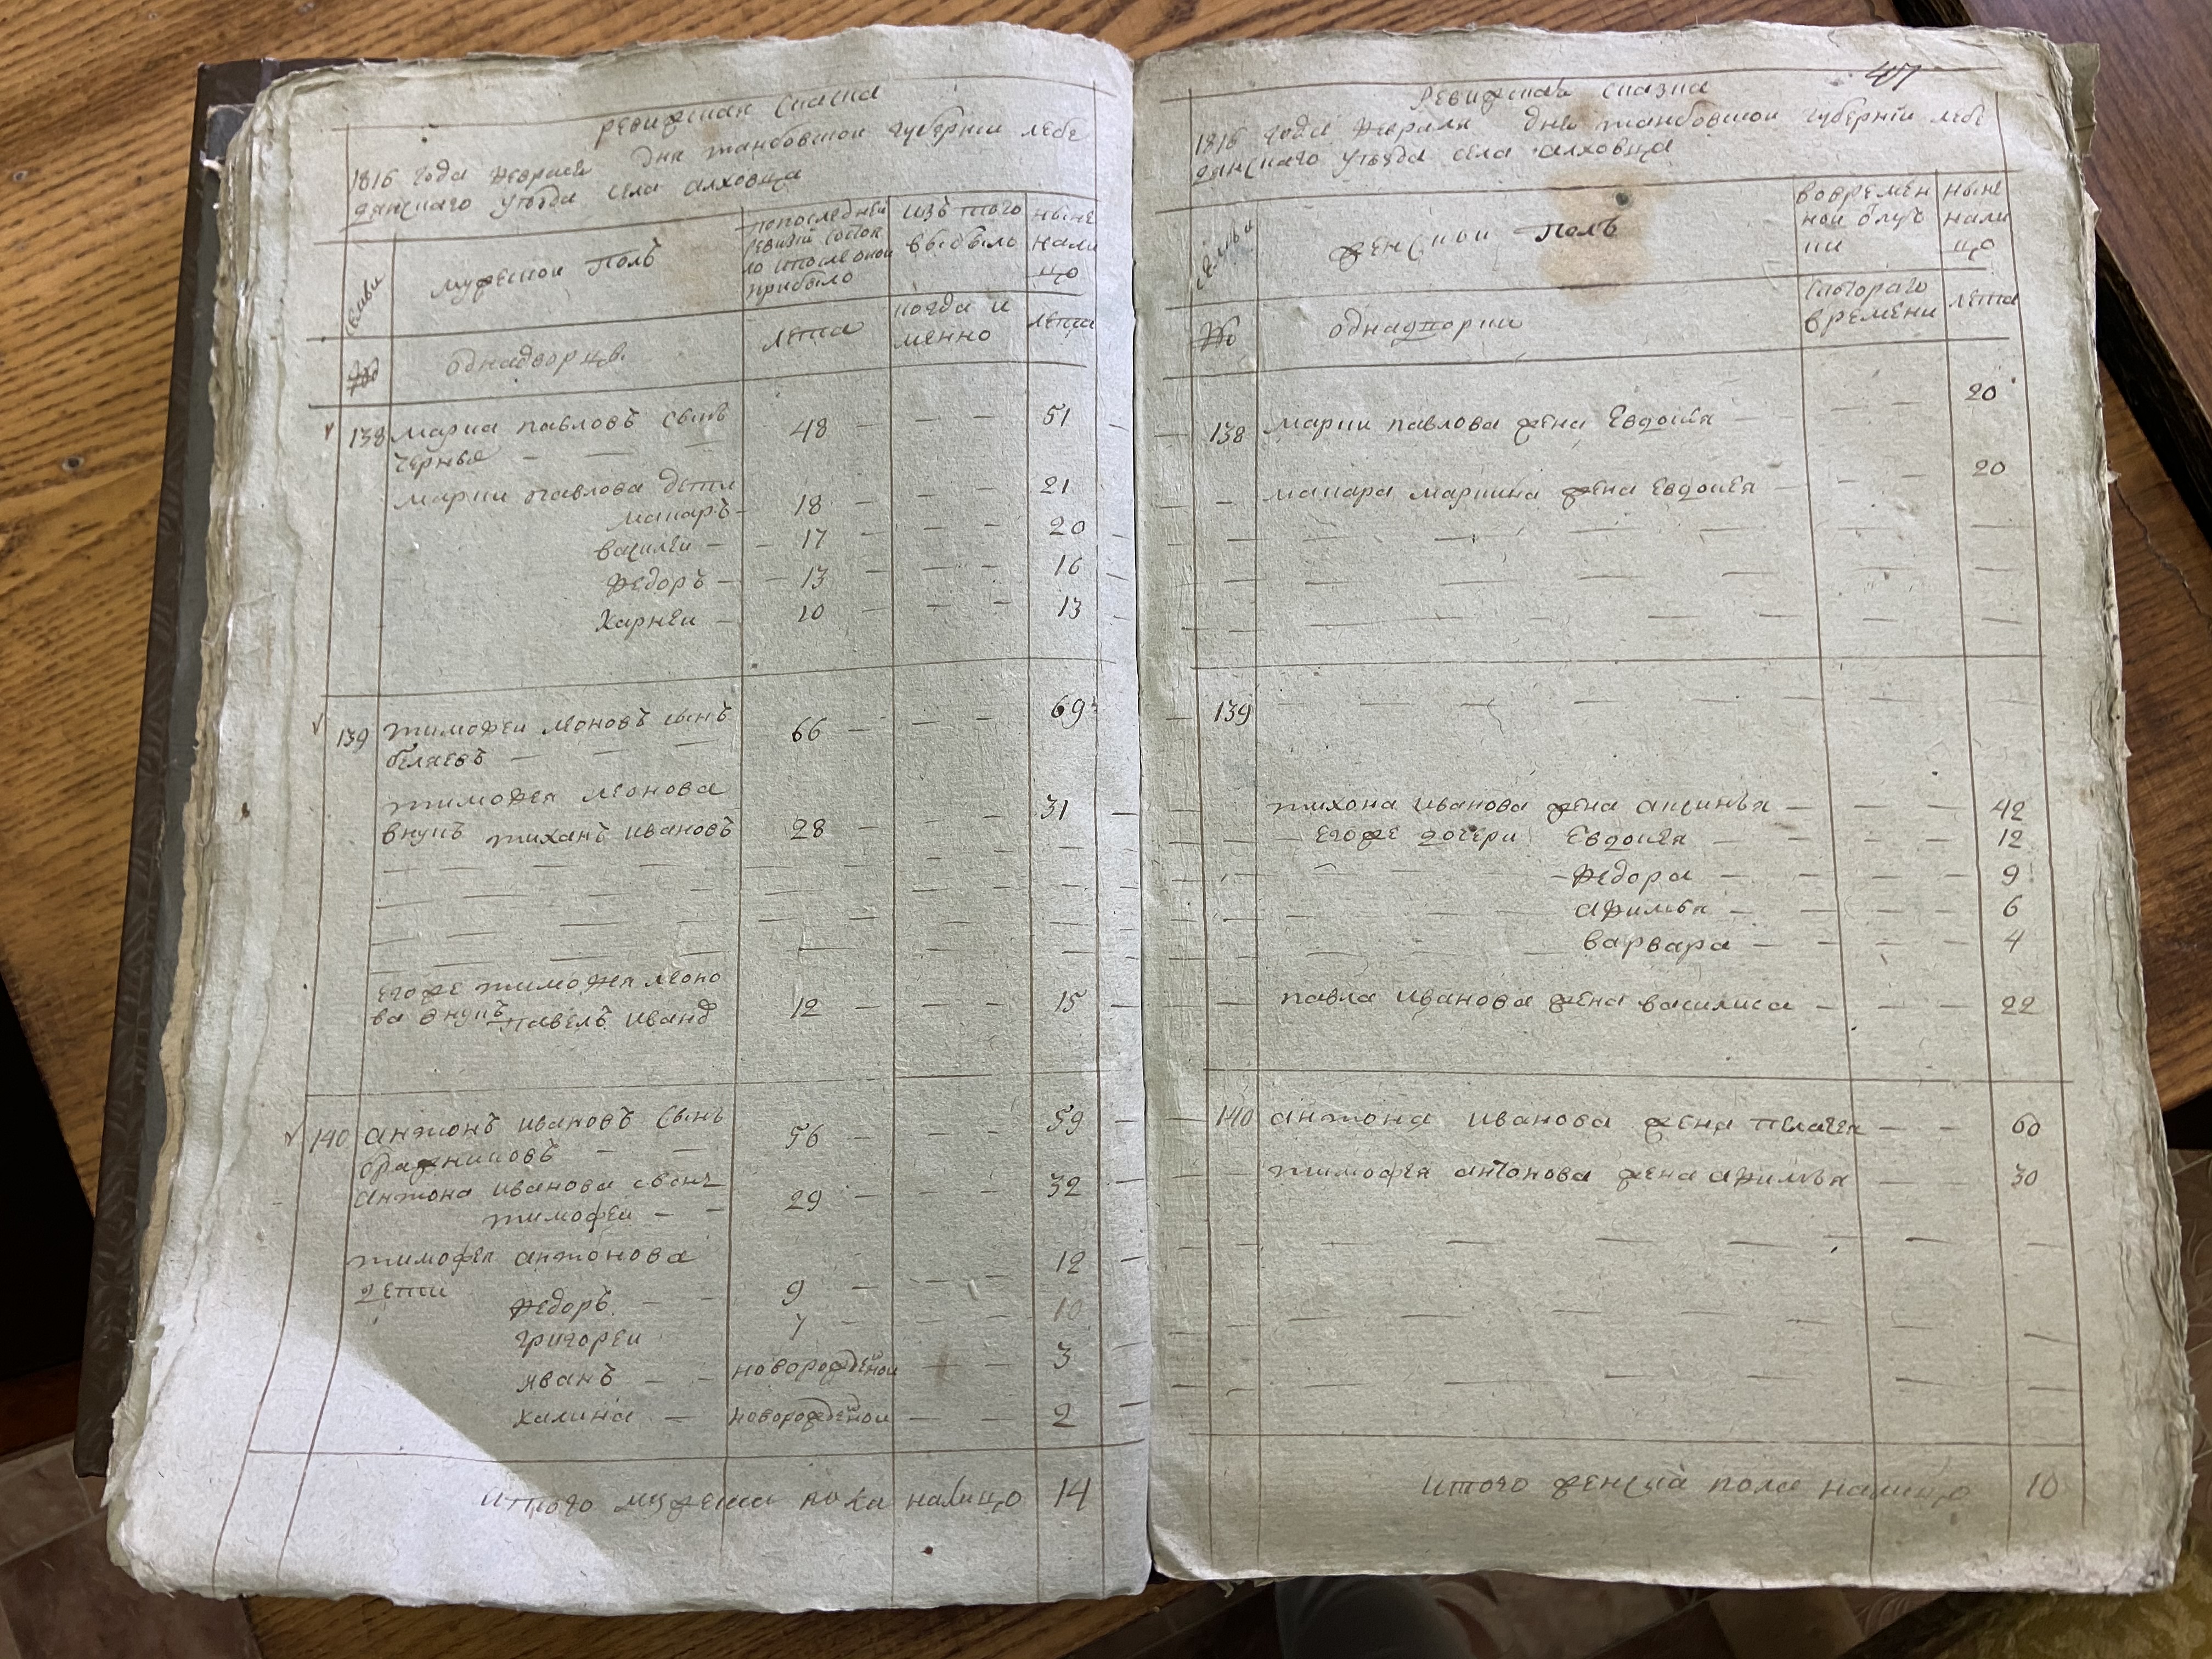 ревижская сказка
1816 года февраля дня танбовской губернии лебе
дянскаго уѣзда села алховца
семьи
мужеской полъ
попоследней
ревизии состоя
ло ипосле оной
прибыло
изъ того
выбыло
ныне
нали
цо
№
однадворцы
лета
когда и
менно
лета
138 марка павловъ сынъ 48 — — 51
черных — —
марки павлова дети
макаръ — 18 — — — 21
василеи — 17 — — — 20
федоръ — 13 — — — 16
харнеи — 10 — — — 13
139 тимофеи леоновъ сынъ 66 — — — 69
белаевъ — — —
тимофея леонова
внукъ тиханъ ивановъ 28 — — — 31
егоже тимофея леоно
ва внукъ павелъ иванъ 12 — — — 15
140 антонъ ивановъ сынъ 56 — — — 59
бражниковъ — —
антона иванова сынъ
тимофеи — — 29 — — — 32
тимофея антонова
дети
федоръ — — 9 — — — 12
григореи 7 — — — 10
яванъ — — новорожденнои — — 3
калина — новорожденнои — — 2
итого мужеска пола налицо 14
47
Ревижская сказка
1816 года февраля дня танбовской губерніи лебе
дянскаго уѣзда села алховца
семьи
женской полъ
вовремен
ной отлуч
ки
ныне
нали
цо
№
однадворки
скотораго
времени
лета
138 марки павлова жена Евдокея — — 20
макара маркина жена евдокея — — — 20
139
тихона иванова жена аксинья — — — — 42
Егоже дочери Евдокея — — — — 12
федора — — — — 9
афимья — — — — 6
варвара — — — — 4
павла иванова жена василиса — — — 22
140 антона иванова жена пелагея — — 60
тимофея антонова жена афимья — — 30
итого женска пола налицо 10